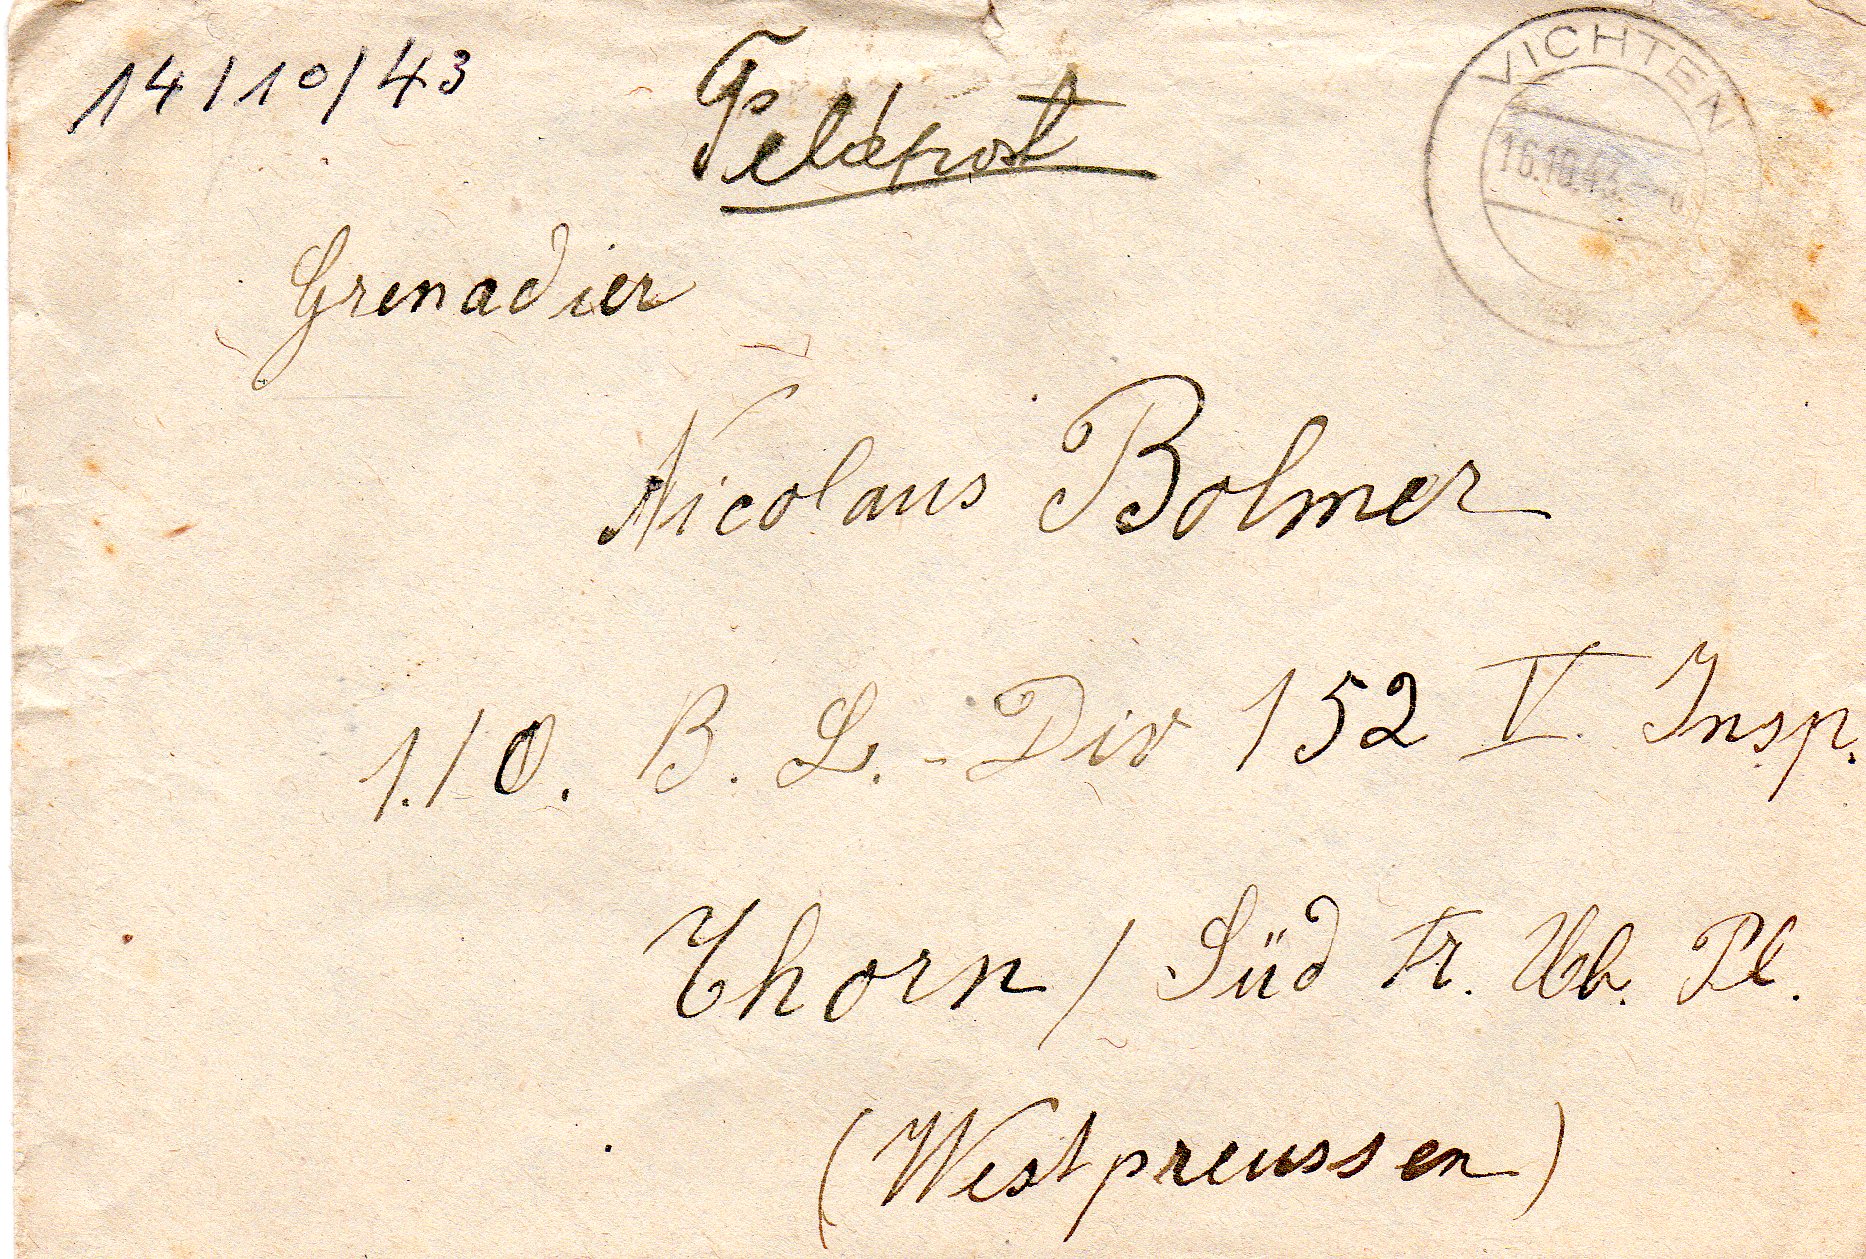 14/10/43
Feldpost
VICHTEN
16.10.43
Grenadier
Nicolaus Bolmer
1./O. B. L. - Div 152 V. Insp.
Thorn / Süd Tr. Ub. Pl.
(Westpreussen)